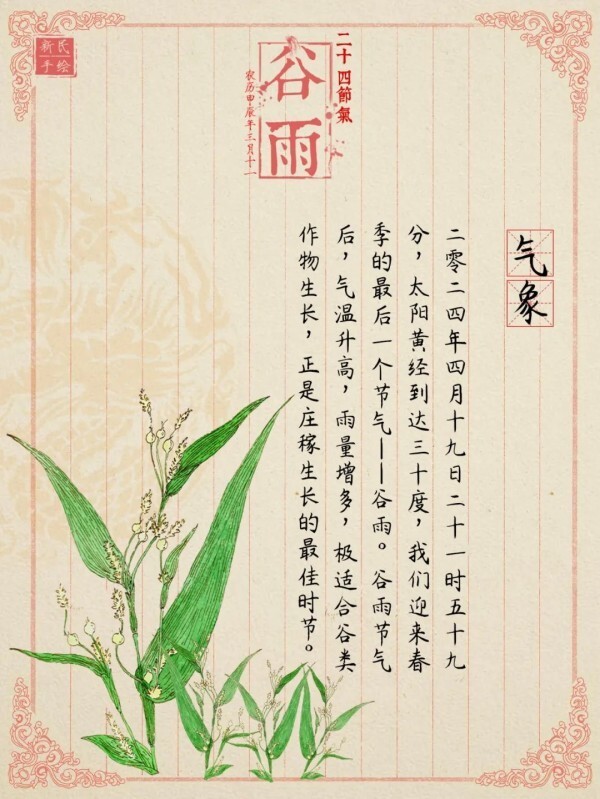 二十四節氣
谷雨
农历甲辰年三月十一
新民
手绘
气象
二零二四年四月十九日二十一时五十九
分，太阳黄经到达三十度，我们迎来春
季的最后一个节气——谷雨。谷雨节气
后，气温升高，雨量增多，极适合谷类
作物生长，正是庄稼生长的最佳时节。